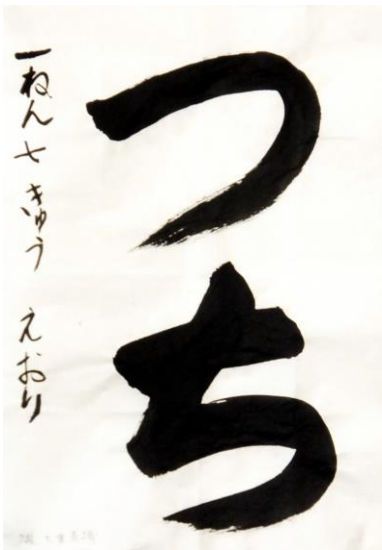 つち
一ねん七きゅう えおり